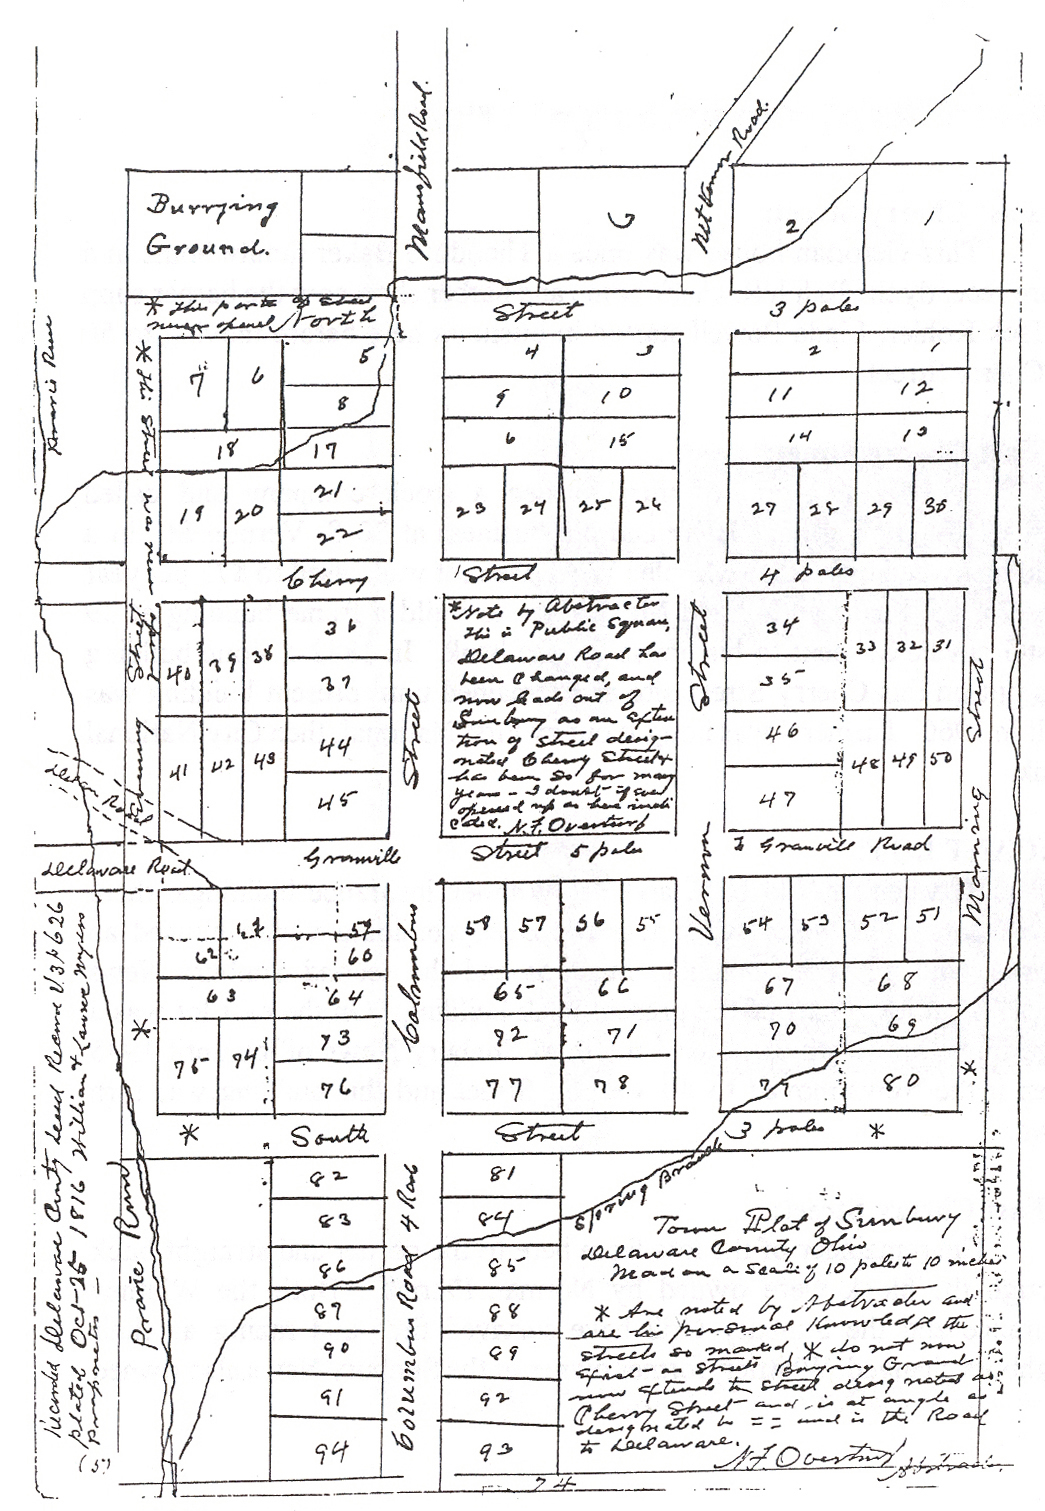 Mansfield Road.
Mt Vernon Road.
Burrying
Ground.
2
1
* this part of street
never opened North
Street
3 poles
Prairie Run
* this Street was never
7
6
5
8
18
17
19
20
21
22
4
3
9
10
6
15
23
24
25
26
2
1
11
12
14
13
27
28
29
30
Cherry
Street
4 poles
40
39
38
36
37
41
42
43
44
45
Street
*Note by Abstractor
this is Public Square,
Delaware Road has
been Changed, and
now leads out of
Sunbury as an Exten
tion of street desig-
nated Cherry Street &
has been so for many
years - I doubt if ever
opened up as here indi
cated. N.F. Overturf
Vernon Street
34
35
46
47
33
32
31
48
49
50
Morning Street
Delaware Road.
Granville
Street 5 poles
To Granville Road
62
59
60
63
64
75
74
73
76
Columbus
58
57
56
55
65
66
72
71
77
78
54
53
52
51
67
68
70
69
79
80
*
*
*
South
Street
3 poles
*
82
83
86
87
90
91
94
Columbus Road 4 Rod
81
84
85
88
89
92
93
Spring Branch
Prairie Run
Recorded Delaware County Deed Record V3 P626
plated Oct-25 1816 William & Lawrence Myers
proprietors -
(5)
Town Plot of Sunbury
Delaware County Ohio
Mead on a scale of 10 poles to 10 inches
* Are noted by Abstracter and
are his personal Knowledge the
streets so marked, * do not now
Exist as streets Burying Ground
now Extends to street designated as
Cherry Street and is at angle as
designated by == and is the Road
to Delaware.
N.F. Overturf
Abstracter.
74